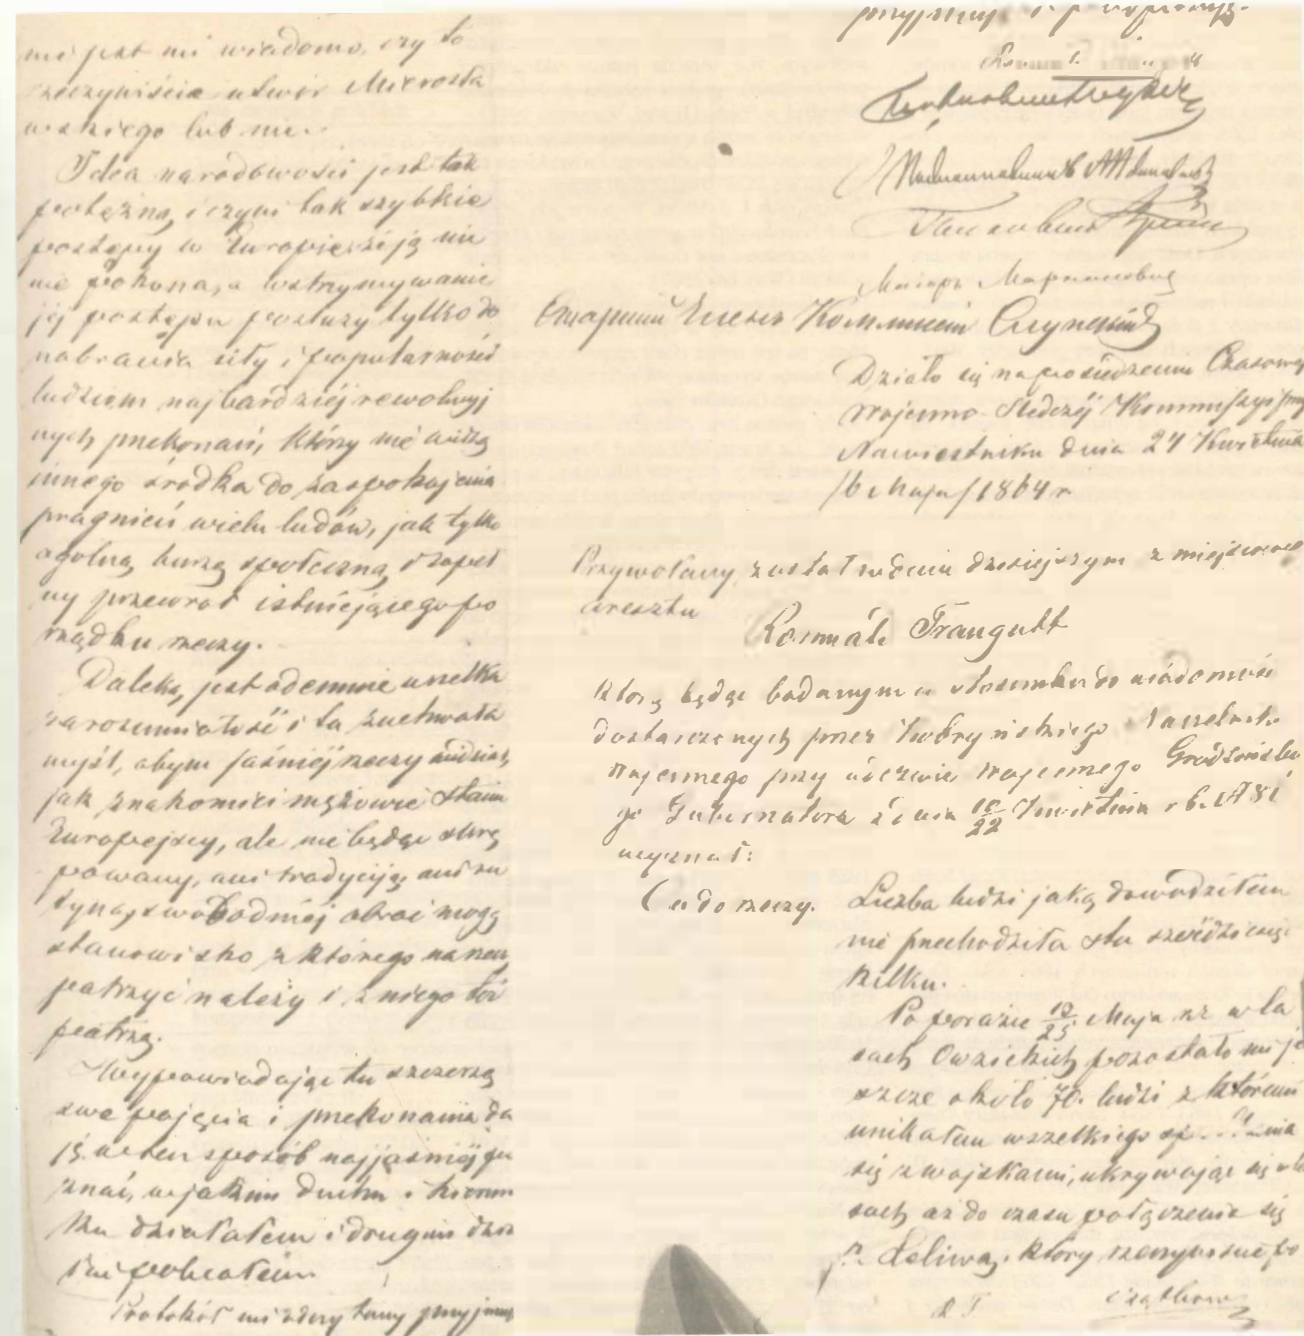 nie jest mi wiadomo, czy to
rzeczywiście utwór Mierosła
wskiego lub nie.
Idea narodowości jest tak
potężną, i czyni tak szybkie
postępy w Europie, że ją nic
nie pokona, a wstrzymywanie
jej postępu posłuży tylko do
nabrania siły i popularności
ludziom najbardziéj rewolucyj
nych przekonań, którzy nie widzą
innego środka do zaspokojenia
pragnień wielu ludów, jak tylko
ogólną burzę społeczną, i zupeł
ny przewrót istniejącego po
rządku rzeczy.
Daleką jest odemnie wszelka
zarozumiałość i ta zuchwała
myśl, abym jaśniéj rzeczy widział,
jak znakomici mężowie stanu
Europejscy, ale nie będąc skrę
powany, ani tradyciją, ani ru
tyną, swobodniéj obrać mogę
stanowisko z którego na rzeczy
patrzyć należy i z niego téż
patrzę.
Wypowiadając tu szczerze
swe pojęcia i przekonania da
ję w ten sposób najjaśniéj po
znać, w jakim duchu i kierun
ku działałem i drugim dzia
łać poleciłem.
Protokół mi odczytany przyjmuję
przyjmuję i podpisuję.
Маіоръ Мариановичъ
Старшій Членъ Коммисіи
Działo się na posiedzeniu Czasowej
Wojenno-Śledczéj Kommissyi przy
Namiestniku dnia 24 Kwietnia
/6 Maja/ 1864 r
Przywołany został w dniu dzisiejszym z miejscowego
aresztu
Romuáld Traugutt
który będąc badanym w stosunku do wiadomości
dostarczonych przez Kobryńskiego Naczelnika
Wojennego przy odezwie wojennego Grodzieńskie
go Gubernatora z dnia 10/22 Kwietnia r b.
wyznał:
Co do rzeczy.
Liczba ludzi jaką dowodziłem
nie przechodziła stu sześdziesięciu
kilku.
Po porazie 13/25 Maja rz w la
sach Owzickich pozostało mi je
szcze około 70. ludzi z któremi
unikałem wszelkiego spotkania
się z wojskami, ukrywając się w la
sach aż do czasu połączenia się
p. Leliwą. który rzeczywiście po
R T